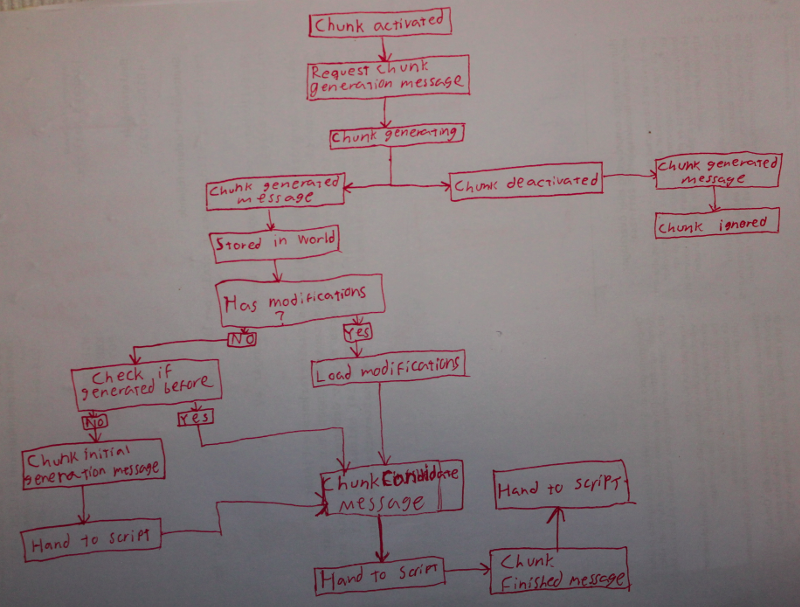 Chunk activated
Request Chunk
generation message
Chunk generating
Chunk generated
message
Chunk deactivated
Chunk generated
message
Chunk ignored
Stored in World
Has modifications
?
No
Yes
Check if
generated before
Load modifications
No
Yes
Chunk initial
generation message
Chunk
message
Hand to script
Hand to script
Hand to script
Chunk
Finished message